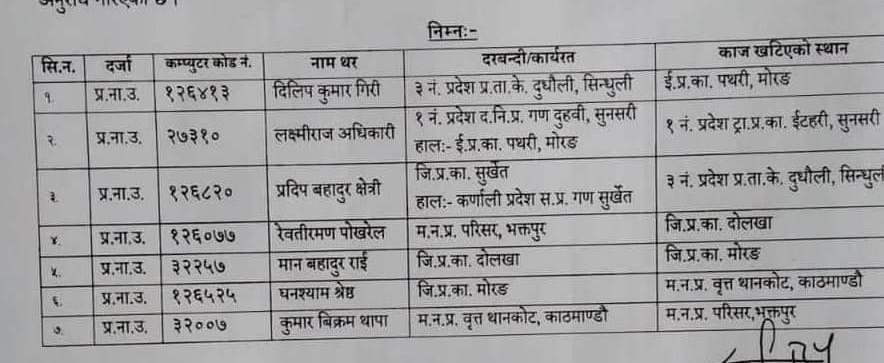 निम्नः-
सि.न. दर्जा कम्प्युटर कोड नं. नाम थर दरबन्दी/कार्यरत काज खटिएको स्थान
१. प्र.ना.उ. १२६४१३ दिलिप कुमार गिरी ३ नं. प्रदेश प्र.ता.के. दुधौली, सिन्धुली ई.प्र.का. पथरी, मोरङ
२. प्र.ना.उ. २७३१० लक्ष्मीराज अधिकारी १ नं. प्रदेश द.नि.प्र. गण दुहवी, सुनसरी १ नं. प्रदेश ट्रा.प्र.का. ईटहरी, सुनसरी
हालः- ई.प्र.का. पथरी, मोरङ
३. प्र.ना.उ. १२६८२० प्रदिप बहादुर क्षेत्री जि.प्र.का. सुर्खेत ३ नं. प्रदेश प्र.ता.के. दुधौली, सिन्धुली
हालः- कर्णाली प्रदेश स.प्र. गण सुर्खेत
४. प्र.ना.उ. १२६०७७ रेवतीरमण पोखरेल म.न.प्र. परिसर, भक्तपुर जि.प्र.का. दोलखा
५. प्र.ना.उ. ३२२५७ मान बहादुर राई जि.प्र.का. दोलखा जि.प्र.का. मोरङ
६. प्र.ना.उ. १२६५२५ घनश्याम श्रेष्ठ जि.प्र.का. मोरङ म.न.प्र. वृत्त थानकोट, काठमाण्डौ
७. प्र.ना.उ. ३२००७ कुमार बिक्रम थापा म.न.प्र. वृत्त थानकोट, काठमाण्डौ म.न.प्र. परिसर,भक्तपुर